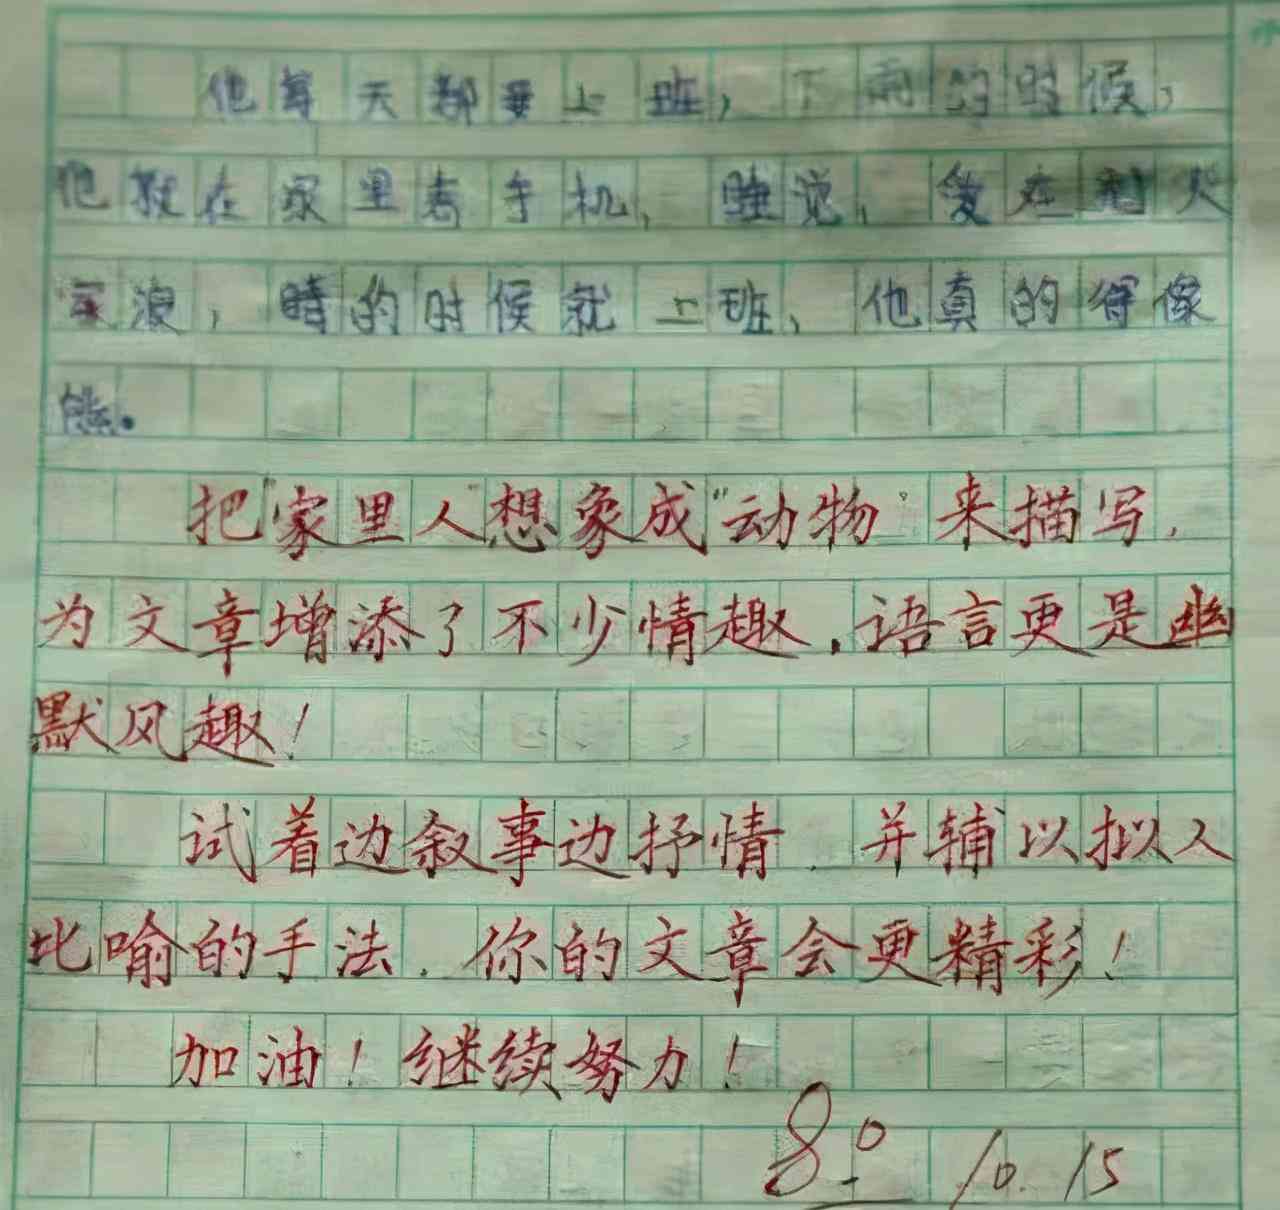 他每天都要上班，下雨的时候，
他就在家里看手机，睡觉，
浪，晴的时候就上班，他真的得像
熊。
把“家里人”想象成“动物”来描写，
为文章增添了不少情趃，语言更是幽
默风趣！
试着边叙事边抒情，并辅以拟人
比喻的手法，你的文章会更精彩！
加油！继续努力！
80 10.15